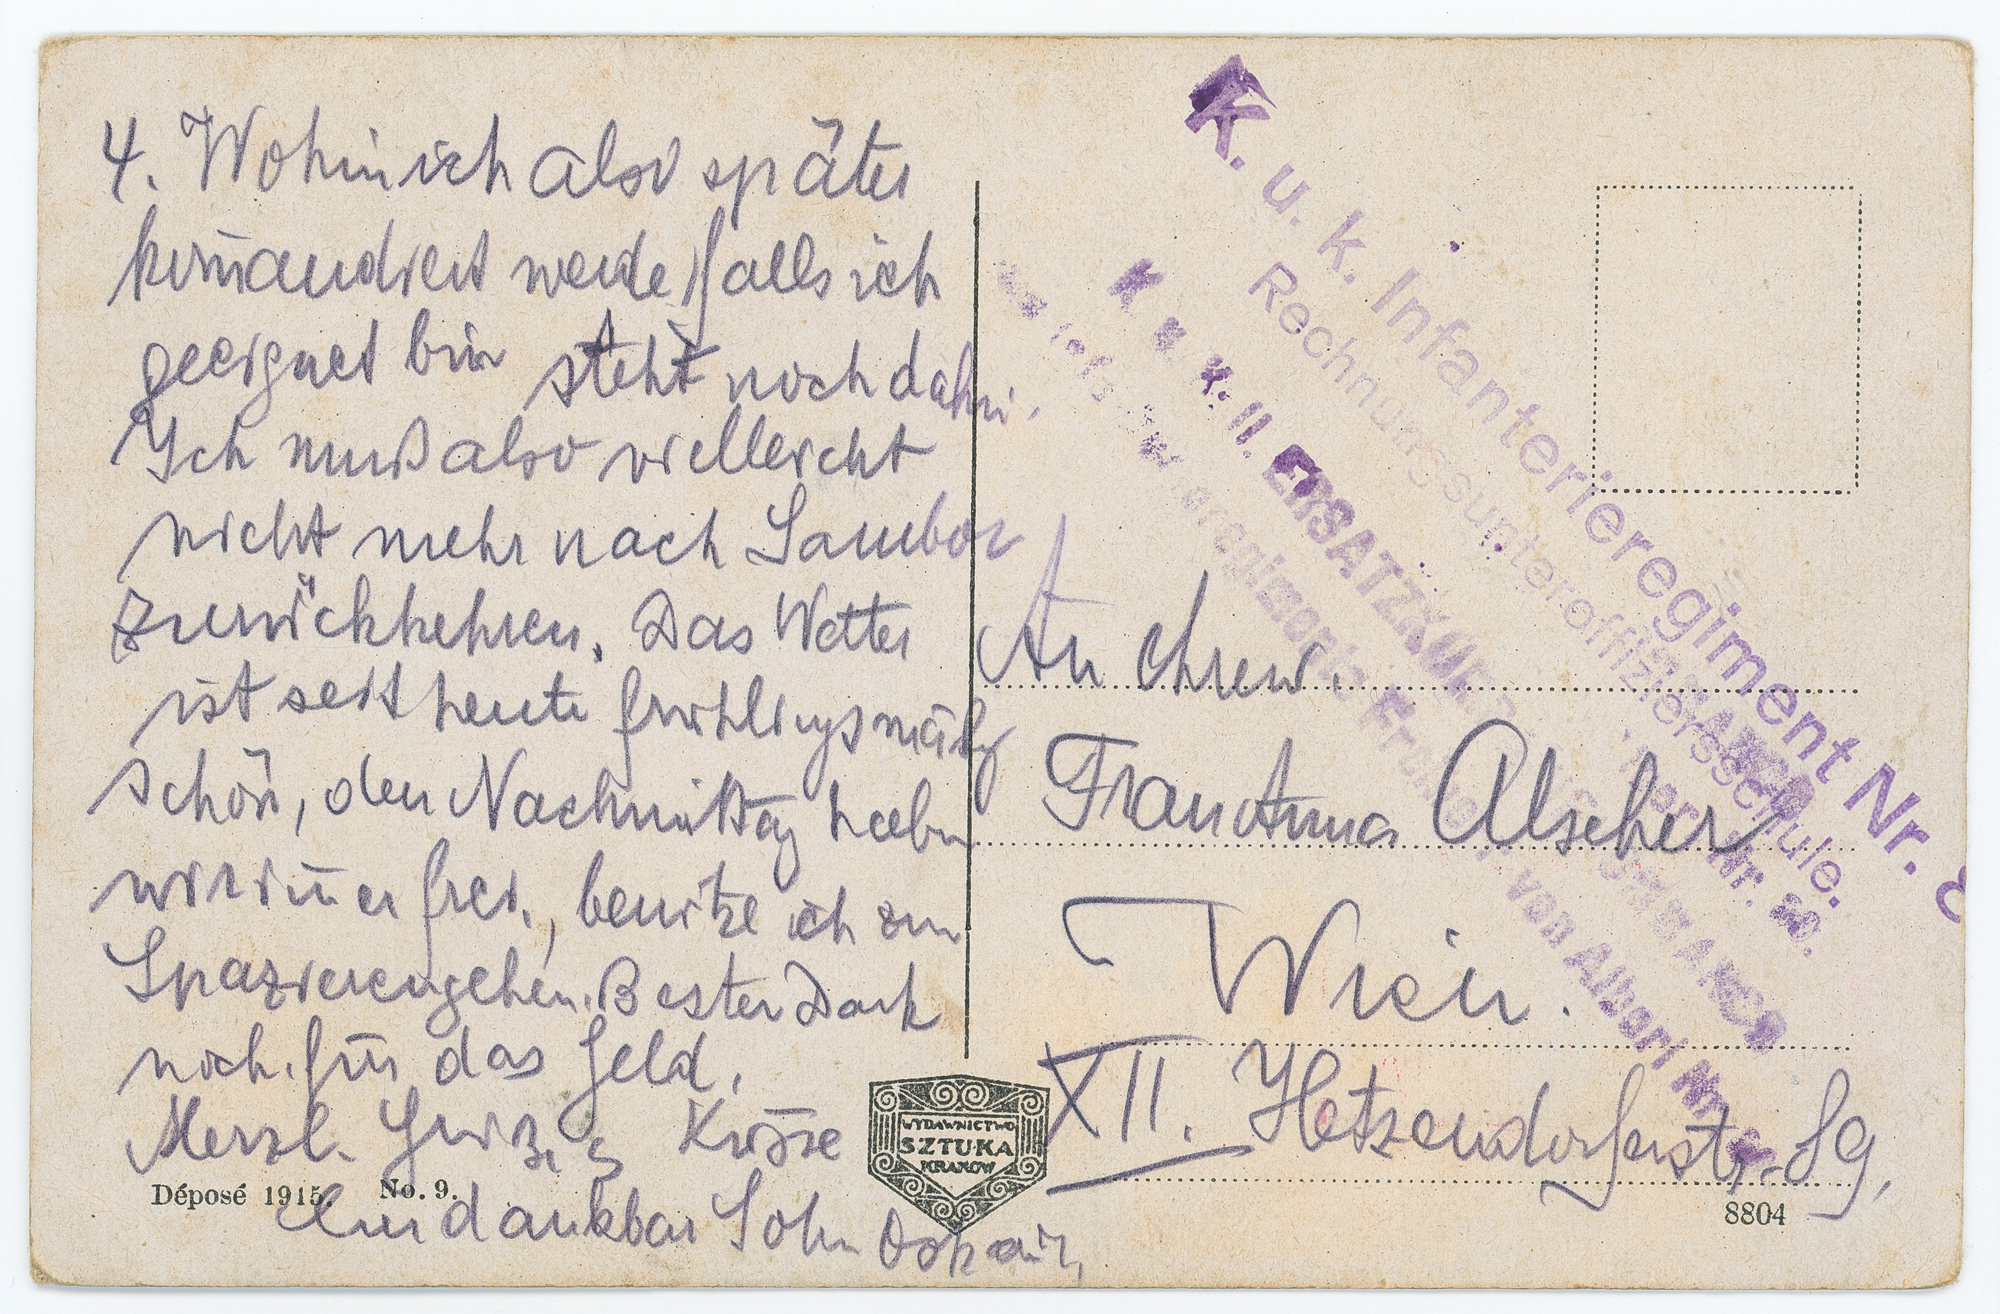 4. Wohin ich also später
kom̄andiert werde, falls ich
geeignet bin steht noch dahin.
Ich muß also vielleicht
nicht mehr nach Sambor
zurückkehren. Das Wetter
ist seit heute frühlingsmäßig
schön, den Nachmittag haben
wir im̄er frei, benütze ich zum
Spazierengehen. Besten Dank
noch für das Geld.
Herzl. Grüße Küsse
Euer dankbar Sohn Oskar.
Déposé 1915. No. 9.
WYDAWNICTWO
SZTUKA
KRAKÓW
K. u. k. Infanterieregiment Nr. 8
Rechnungsunteroffiziersschule.
K. u. k. II. ERSATZKOMP
von Albori
An Ehrew.
Frau Anna Alscher
Wien.
XII. Hetzendorferstr. 59.
8804